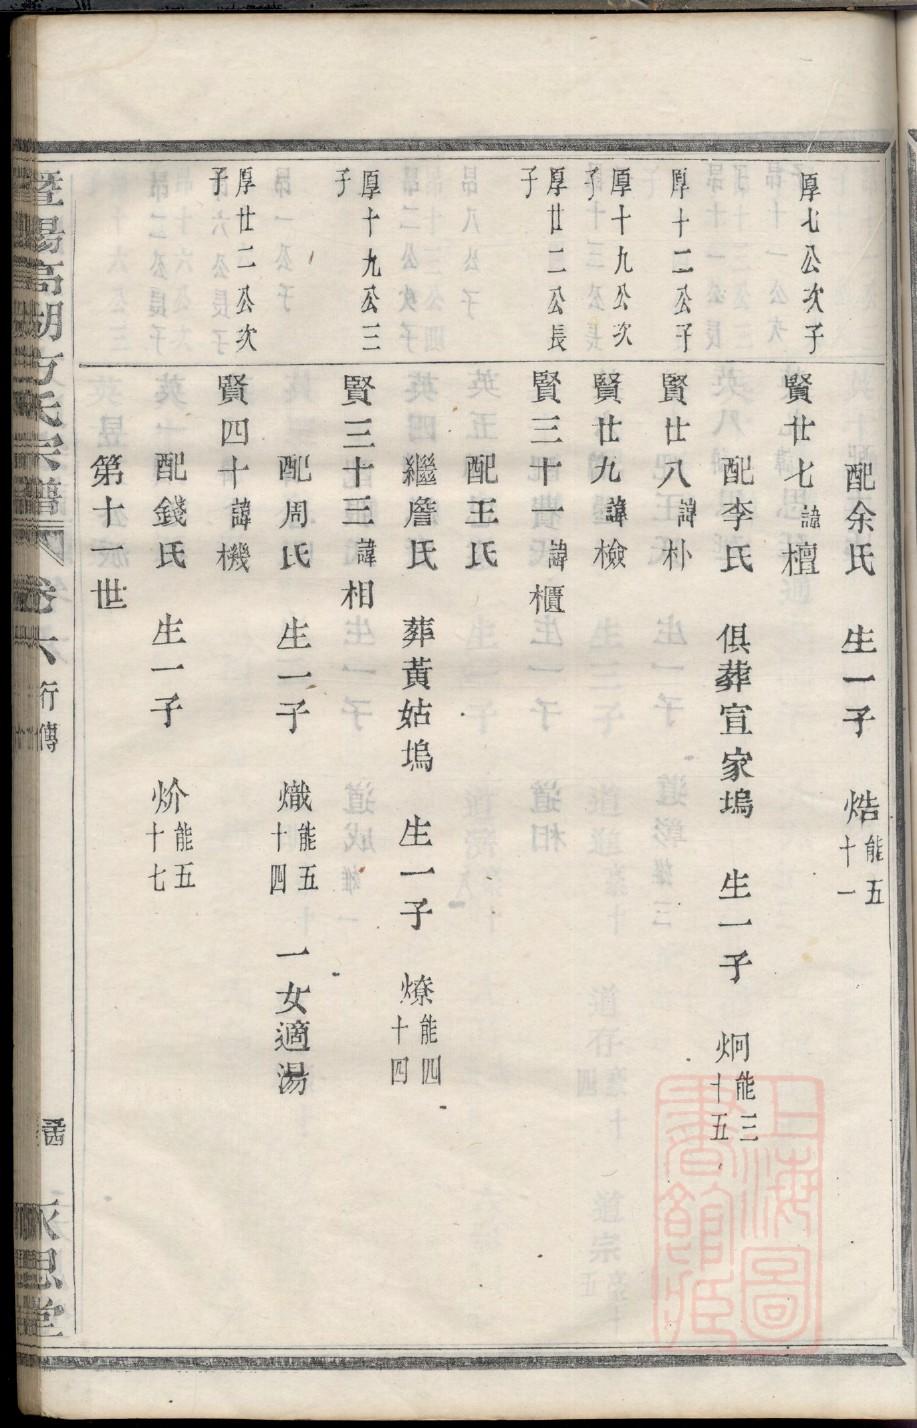 配余氏 生一子 焅能五十一
厚七公次子
賢廿七諱檀
配李氏 俱葬宣家塢 生一子 炯能三十五
厚十二公子
賢廿八諱朴
厚十九公次子
賢廿九諱檢
厚廿二公長子
賢三十一諱櫃
配王氏
繼詹氏 葬黃姑塢 生一子 燎能四十四
厚十九公三子
賢三十三諱相
配周氏 生一子 熾能五十四 一女適湯
厚廿二公次子
賢四十諱機
配錢氏 生一子 炌能五十七
第十一世
暨陽高湖方氏宗譜 卷六 行傳
永思堂
上海圖書館藏